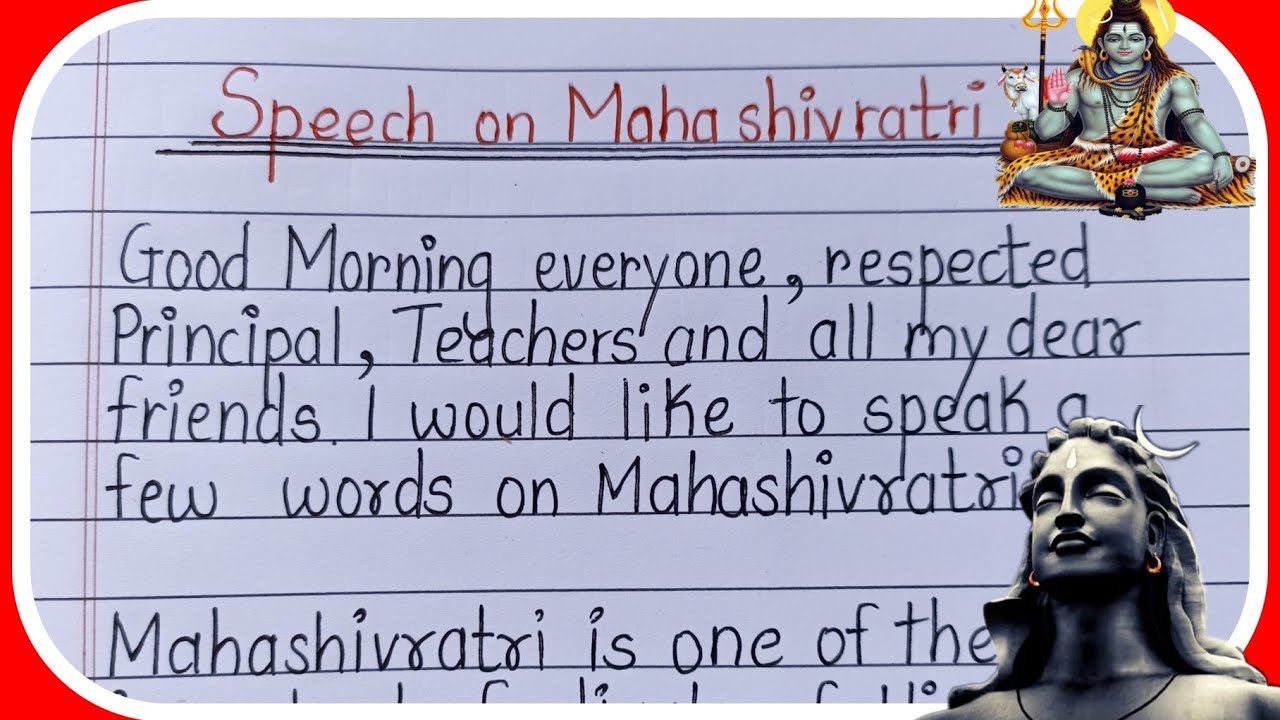 Speech on Mahashivratri
Good Morning everyone, respected
Principal, Teachers and all my dear
friends. I would like to speak a
few words on Mahashivratri
Mahashivratri is one of the